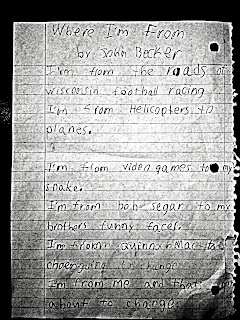 Where I'm From
by John Becker
I'm from the roads of
wisconsin football racing
I'm from Helicopters to
planes.
I'm from video games to my
snake.
I'm from bob segar to my
brothers funny faces.
I'm from
to change
I'm from me and that's
about to change.